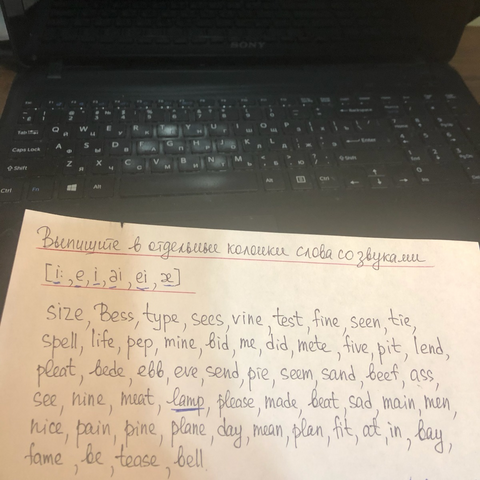 SONY
Выпишите в отдельные колонки слова со звуками
[i:, e, i, ai, ei, æ]
size, Bess, type, sees, vine, test, fine, seen, tie,
spell, life, pep, mine, bid, me, did, mete, five, pit, lend,
pleat, bede, ebb, eve, send, pie, seem, sand, beef, ass,
see, nine, meat, lamp, please, made, beat, sad, main, men,
nice, pain, pine, plane, day, mean, plan, fit, at, in, bay,
fame, be, tease, bell.